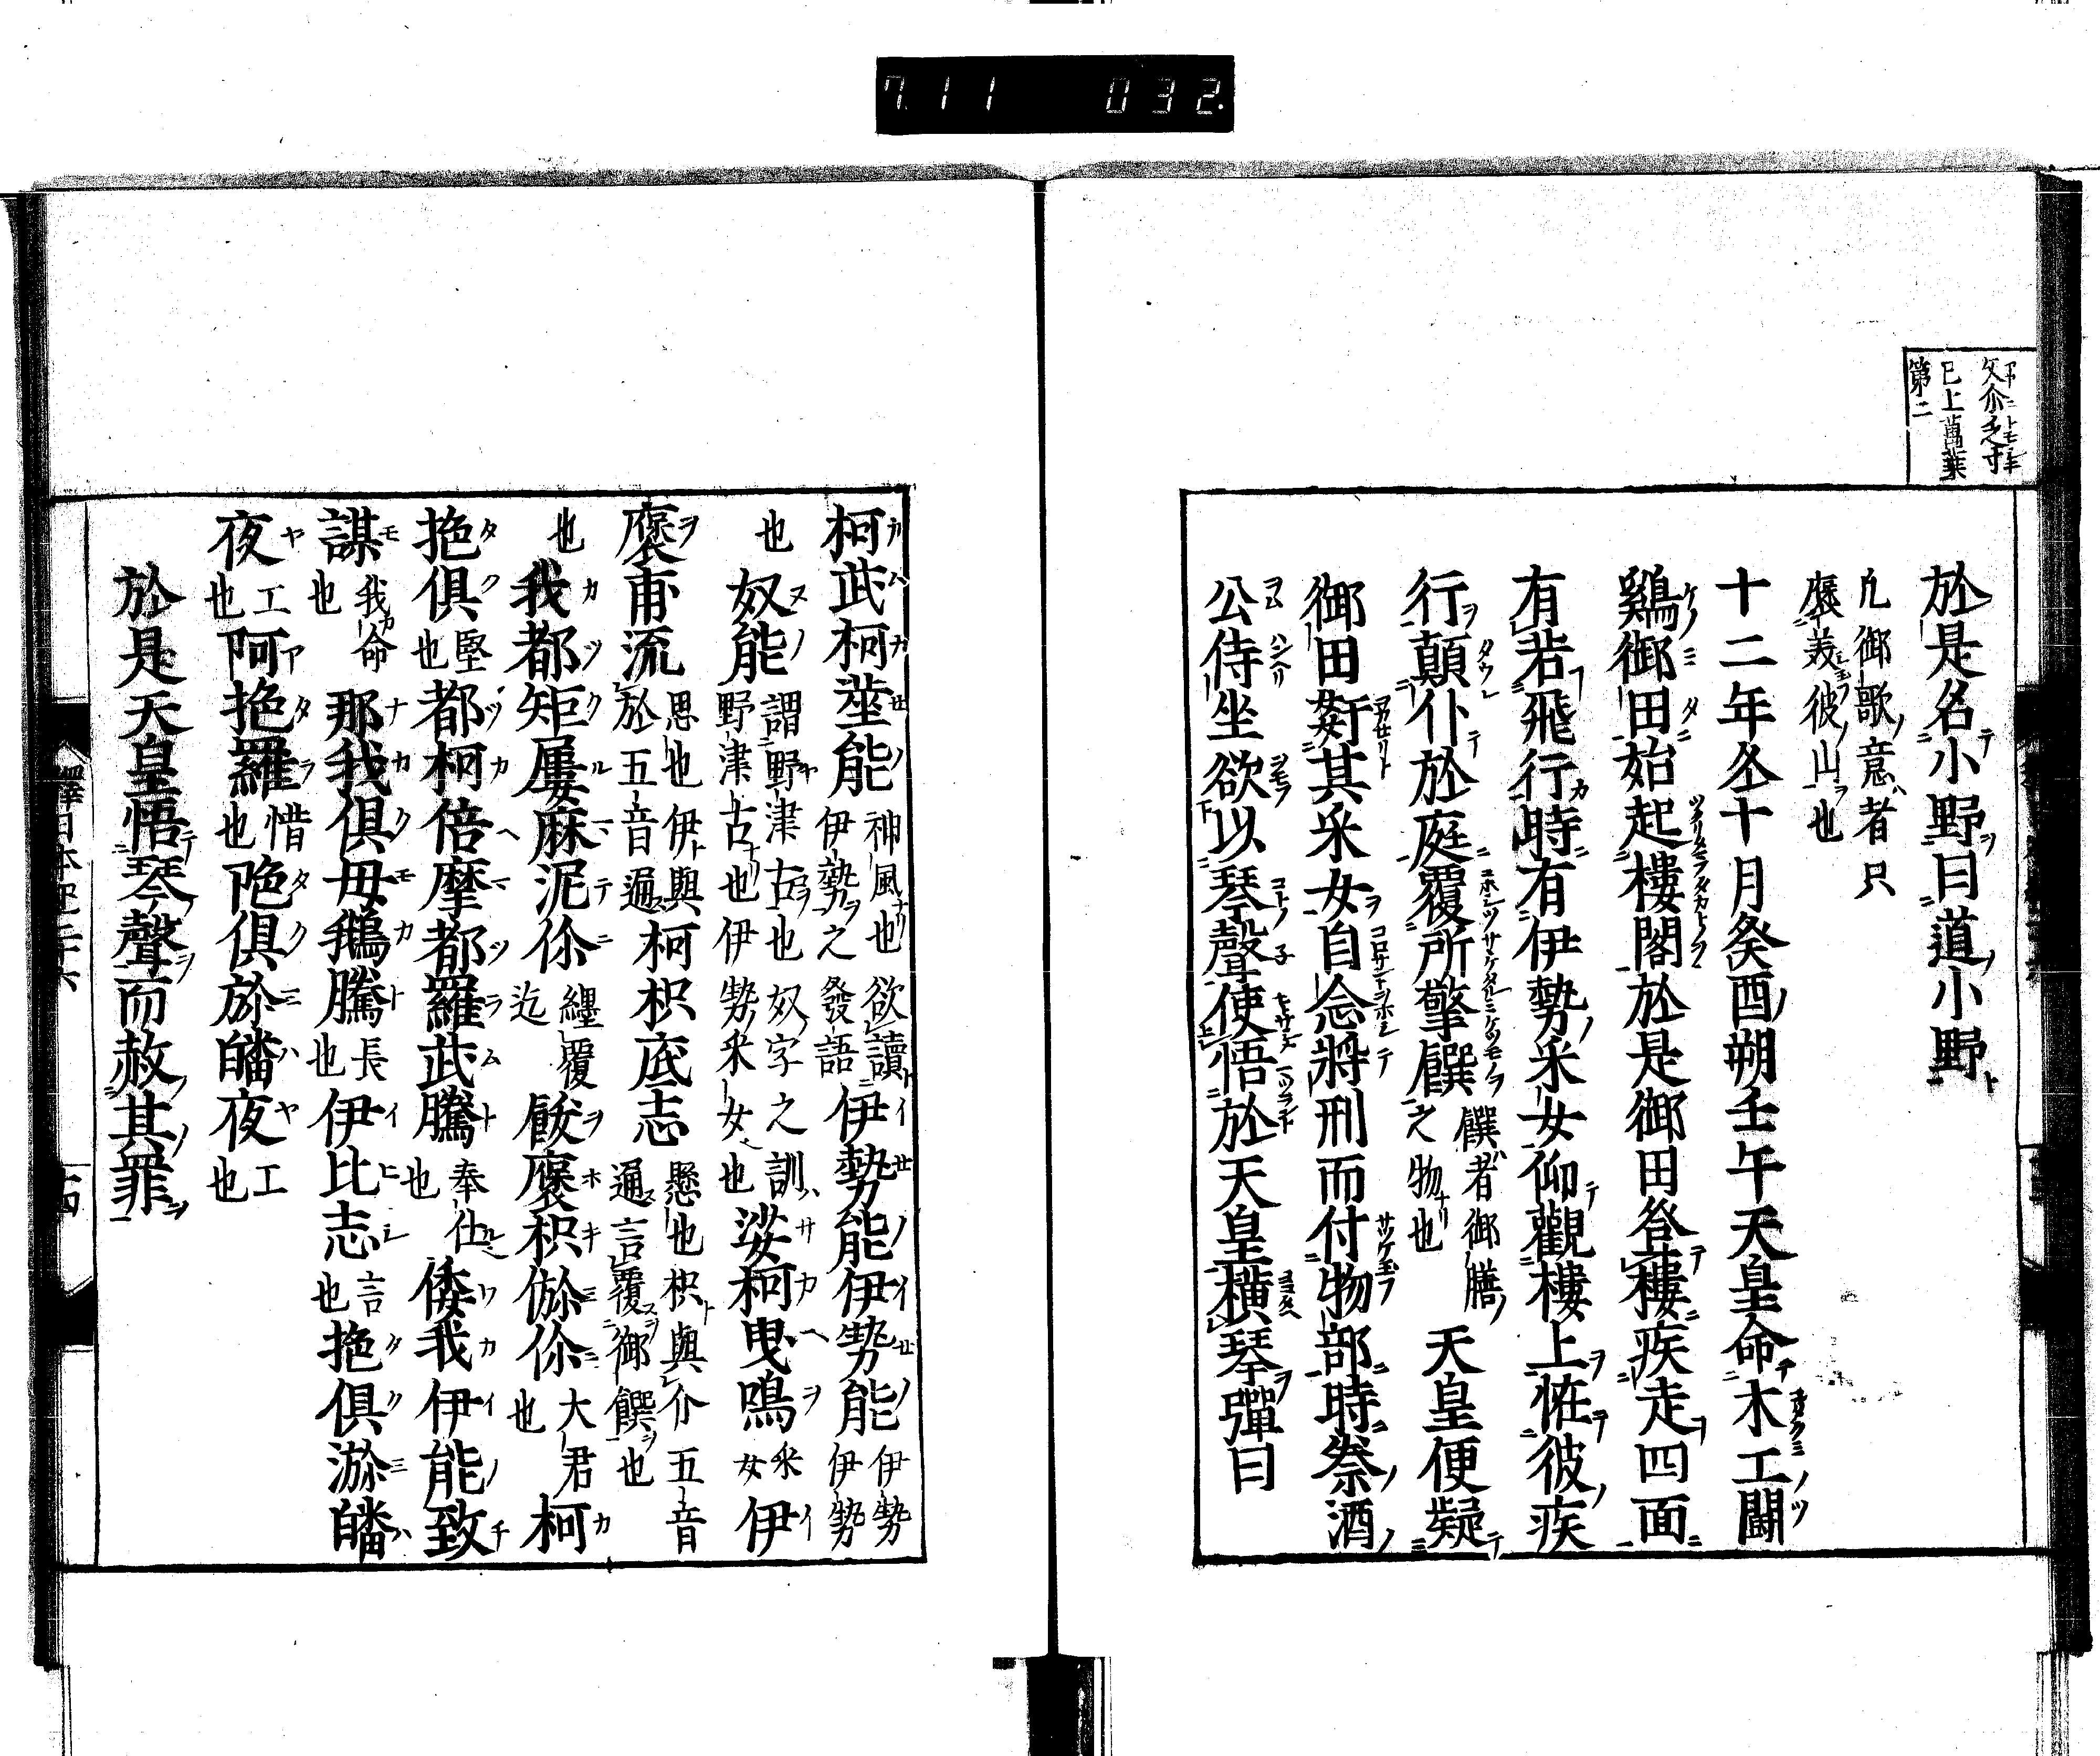 7.11 032.
攵尒之寸
已上萬葉
第二
於是名小野曰道小野
凡御歌意者只
褒美彼山也
十二年冬十月癸酉朔壬午天皇命木工鬪
鷄御田始起樓閣於是御田登樓疾走四面
有若飛行時有伊勢采女仰觀樓上恠彼疾
行顛仆於庭覆所擎饌饌者御膳之物也天皇便疑
御田姧其采女自念將刑而付物部時祭酒
公侍坐欲以琴聲使悟於天皇横琴彈曰
柯武柯噬能神風也欲讀伊勢之發語伊勢能伊勢能伊勢伊勢
也奴能謂野津古也奴字之訓野津古也伊勢采女也娑柯曳鳴采女伊
褒甫流思也伊與於五音通柯枳底志懸也枳與介五音通言覆御饌也
也我都矩屢麻泥伱纏覆迄飫褒枳瀰伱大君也柯
拖俱堅也都柯倍摩都羅武騰奉仕也倭我伊能致
謀我命也那我俱母鵝騰長也伊比志言也拖俱瀰皤
夜工也阿拖羅惜也陁俱瀰皤夜工也
於是天皇悟琴聲而赦其罪